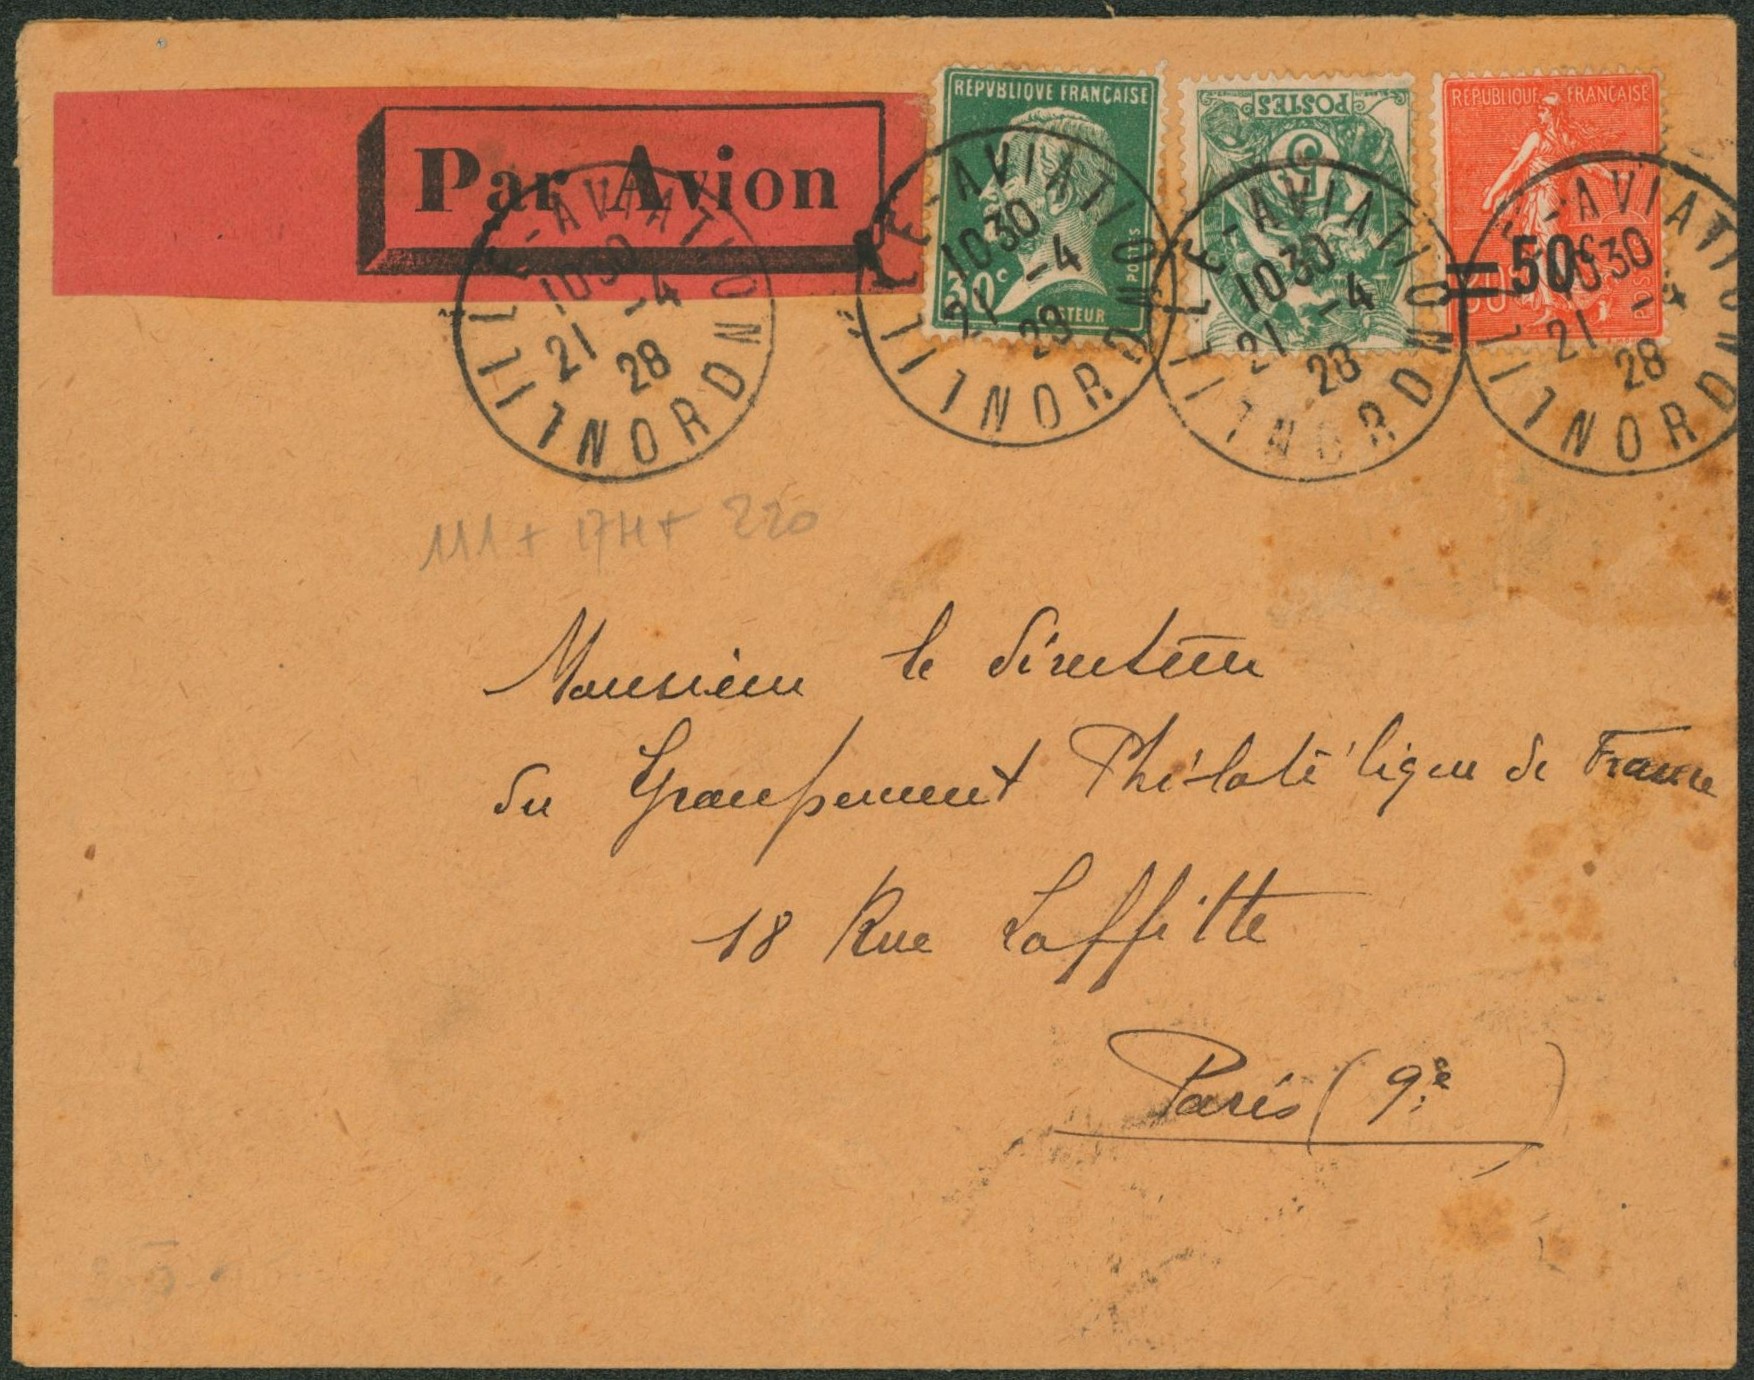 Par Avion
REPVBLIQVE FRANÇAISE
30c
POSTES
PASTEUR
POSTES
5
REPUBLIQUE FRANÇAISE
=50c
LILLE-AVIATION
1030
21 -4
28
NORD
LILLE-AVIATION
1030
21 -4
28
NORD
LILLE-AVIATION
1030
21 -4
28
NORD
LILLE-AVIATION
1030
21 -4
28
NORD
111 + 174 + 220
Monsieur le directeur
du Groupement Philatélique de France
18 Rue Laffitte
Paris (9e)